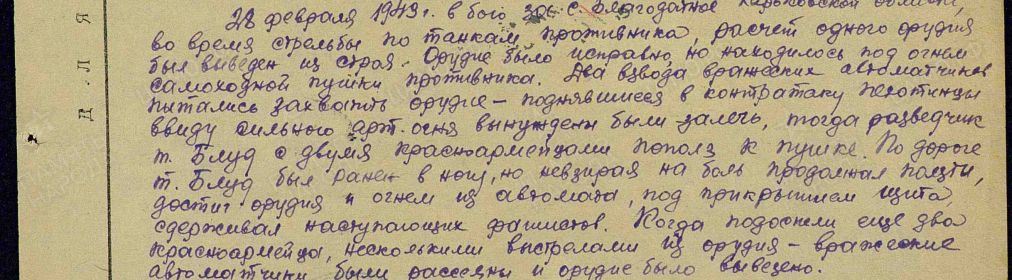 ДЛЯ
28 февраля 1943 г. в бою за с. Благодатное Харьковской области,
во время стрельбы по танкам противника, расчет одного орудия
был выведен из строя. Орудие было исправно, но находилось под огнем
самоходной пушки противника. Два взвода вражеских автоматчиков
пытались захватить орудие – поднявшиеся в контратаку пехотинцы
ввиду сильного арт. огня вынуждены были залечь, тогда разведчик
т. Блуд с двумя красноармейцами пополз к пушке. По дороге
т. Блуд был ранен в ногу, но невзирая на боль продолжал ползти,
достиг орудия и огнем из автомата, под прикрытием щита,
сдерживал наступающих фашистов. Когда подоспели еще два
красноармейца, несколькими выстрелами из орудия – вражеские
автоматчики были рассеяны и орудие было вывезено.